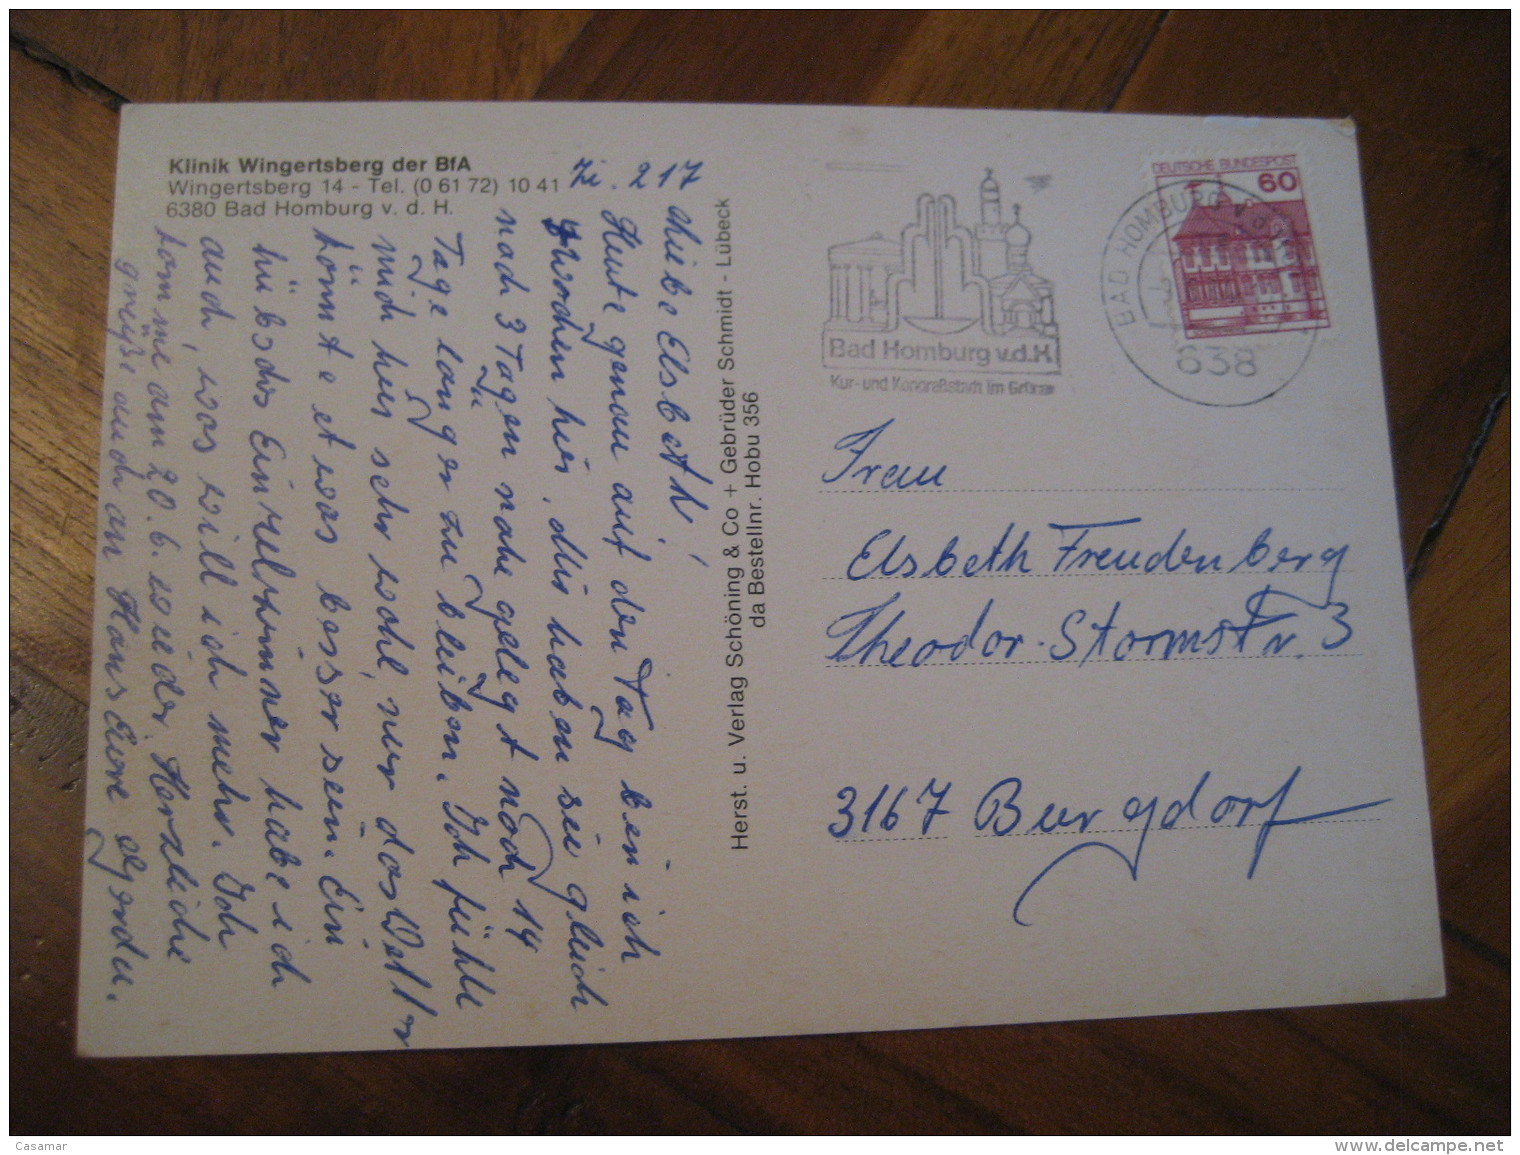 Klinik Wingertsberg der BfA
Wingertsberg 14 - Tel. (0 61 72) 10 41
6380 Bad Homburg v. d. H.
Zi. 217
Liebe Elsbeth!
Heute genau auf den Tag bin ich
3 Wochen hier. Mir haben sie gleich
nach 3 Tagen nahe gelegt noch 14
Tage länger zu bleiben. Ich fühle
mich hier sehr wohl, nur das Wetter
könnte etwas besser sein. Ein
hübsches Einzelzimmer habe ich
auch, was will ich mehr. Ich
komme am 20.6. wieder. Herzliche
Grüße auch an Hans Eure Gerda.
Herst. u. Verlag Schöning & Co + Gebrüder Schmidt - Lübeck
da Bestellnr. Hobu 356
Bad Homburg v.d.H
Kur- und Kongreßstadt im Grünen
DEUTSCHE BUNDESPOST
60
BAD HOMBURG v d
638
Frau
Elsbeth Freudenberg
Theodor-Stormstr. 3
3167 Burgdorf
Casamar
delcampe.net